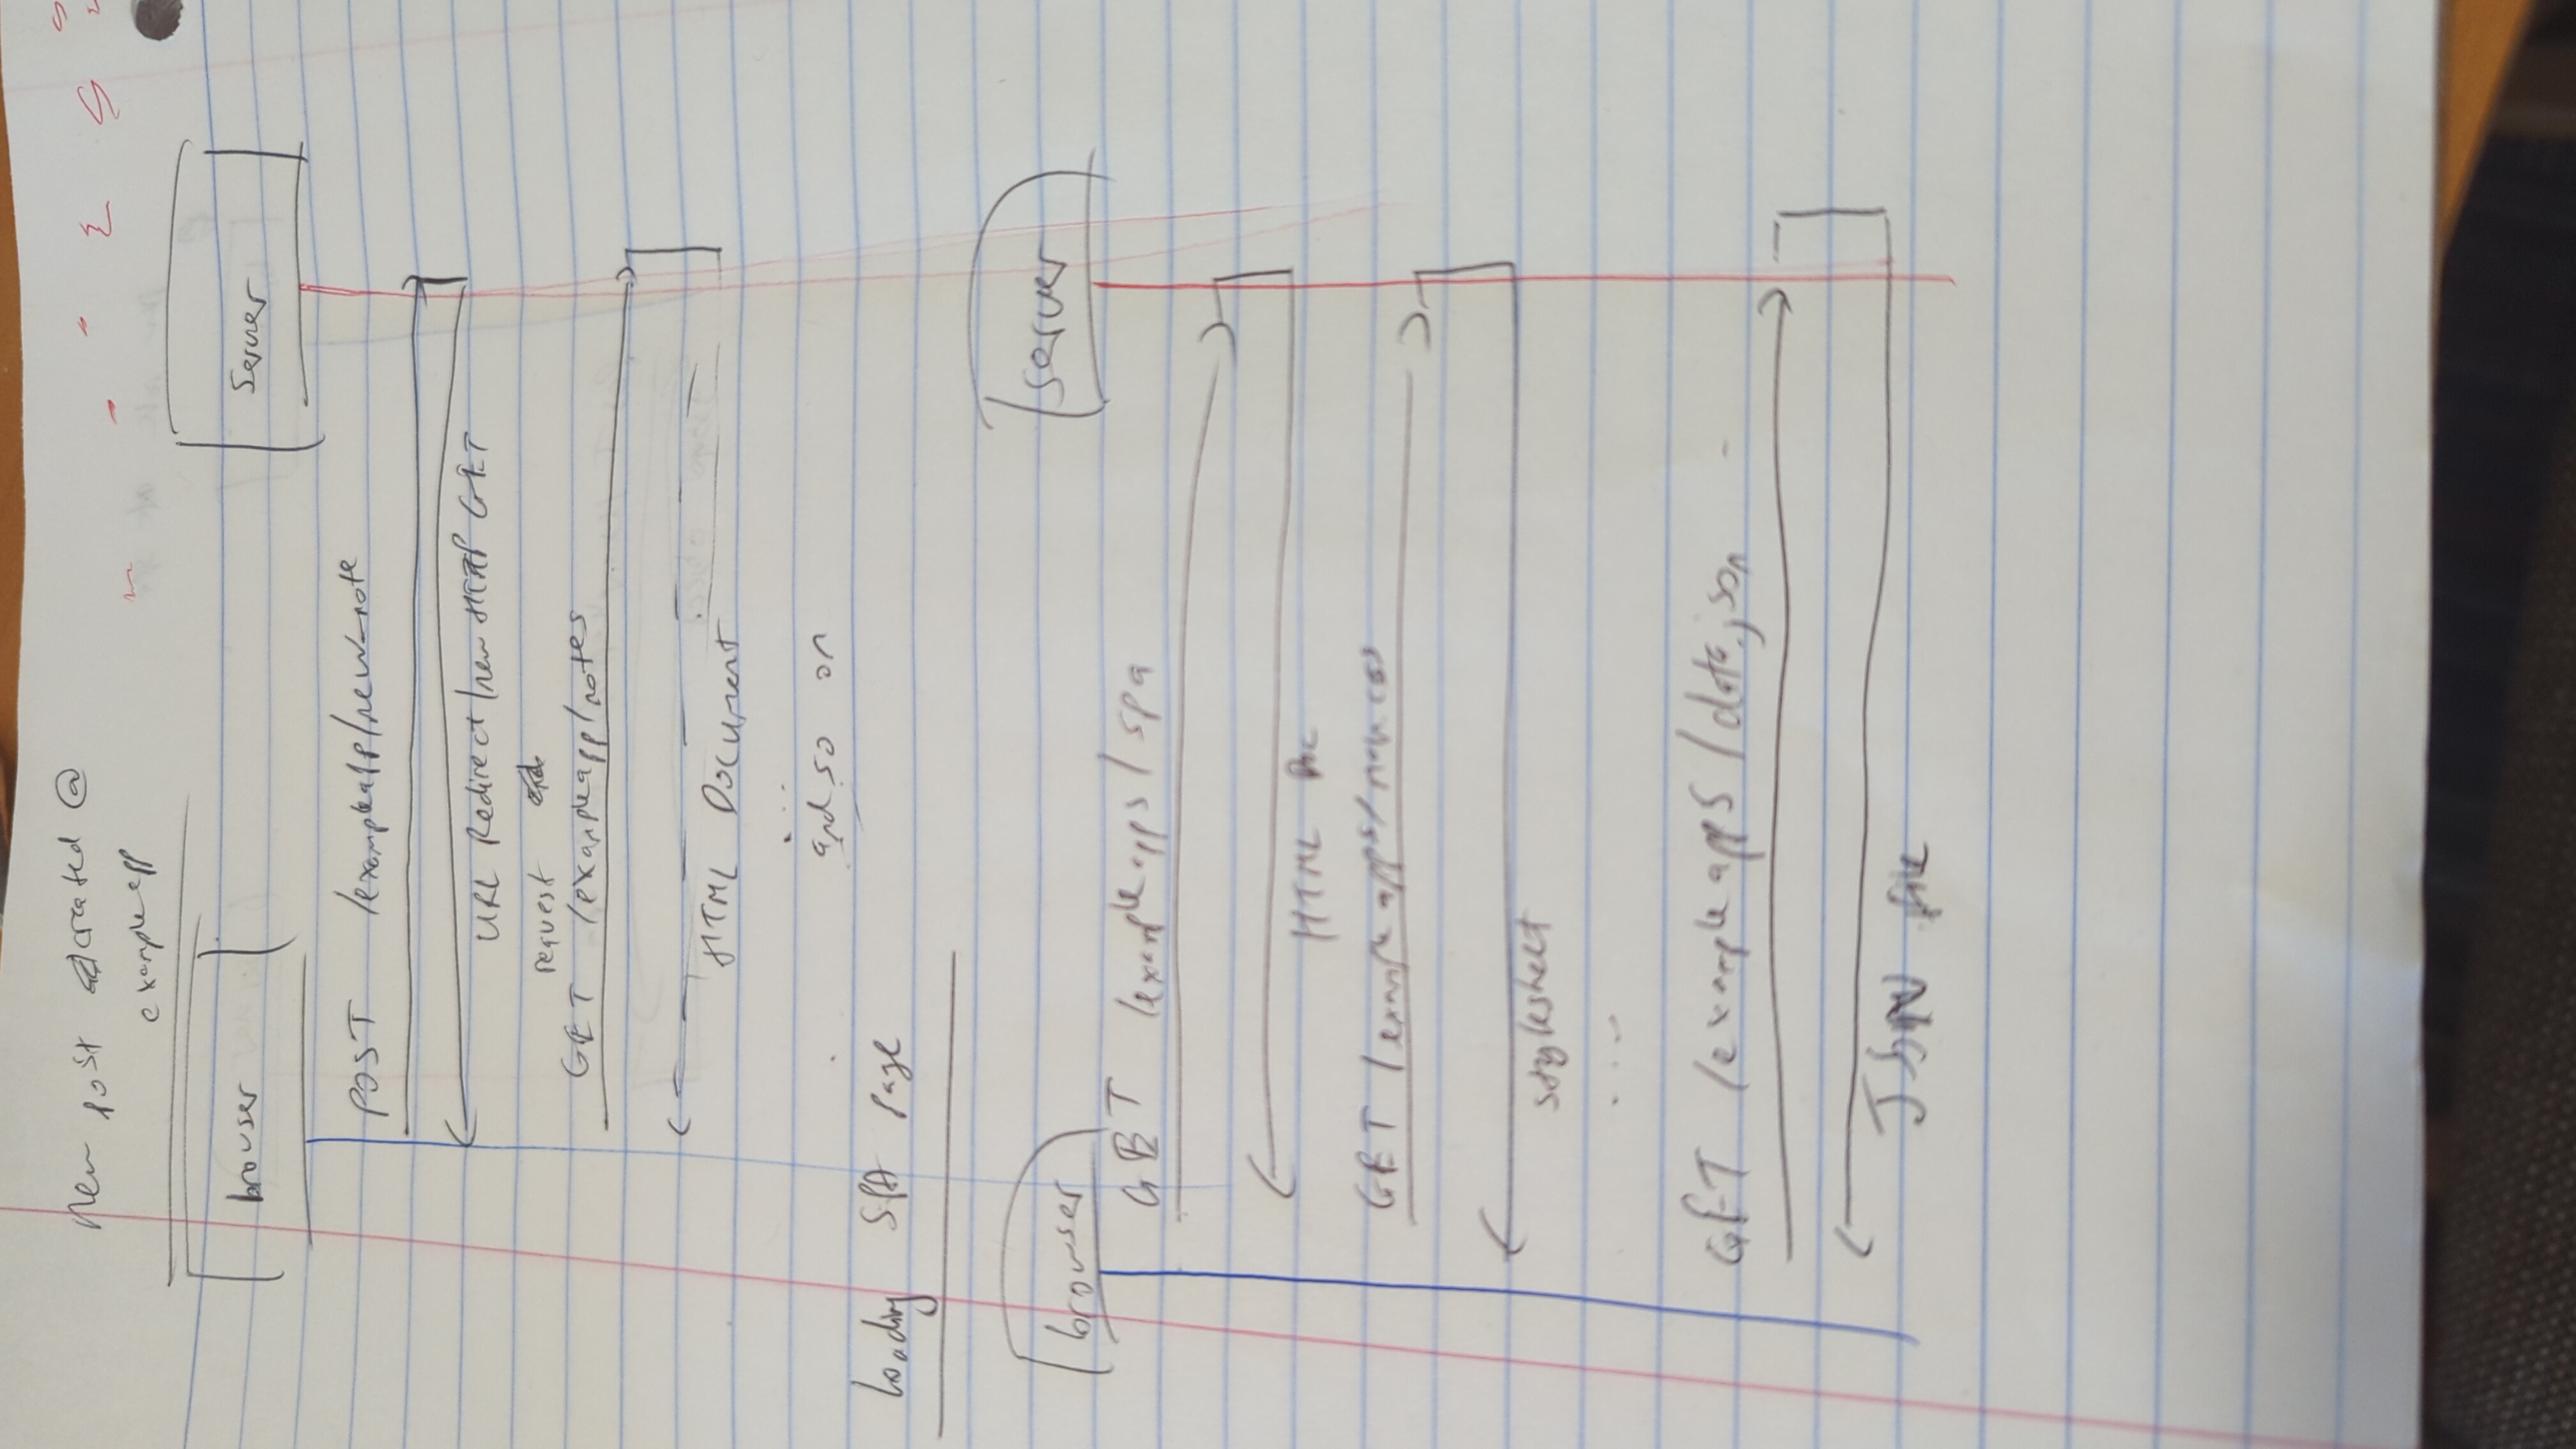 new post created @
exampleapp
browser
server
POST /exampleapp/new_note
URL Redirect/new HTTP GET
request
GET /exampleapp/notes
HTML Document
...
and so on
Loading SPA page
browser
server
GET /exampleapps/spa
HTML Doc
GET /exampleapps/main.css
stylesheet
...
GET /exampleapps/data.json
JSON file